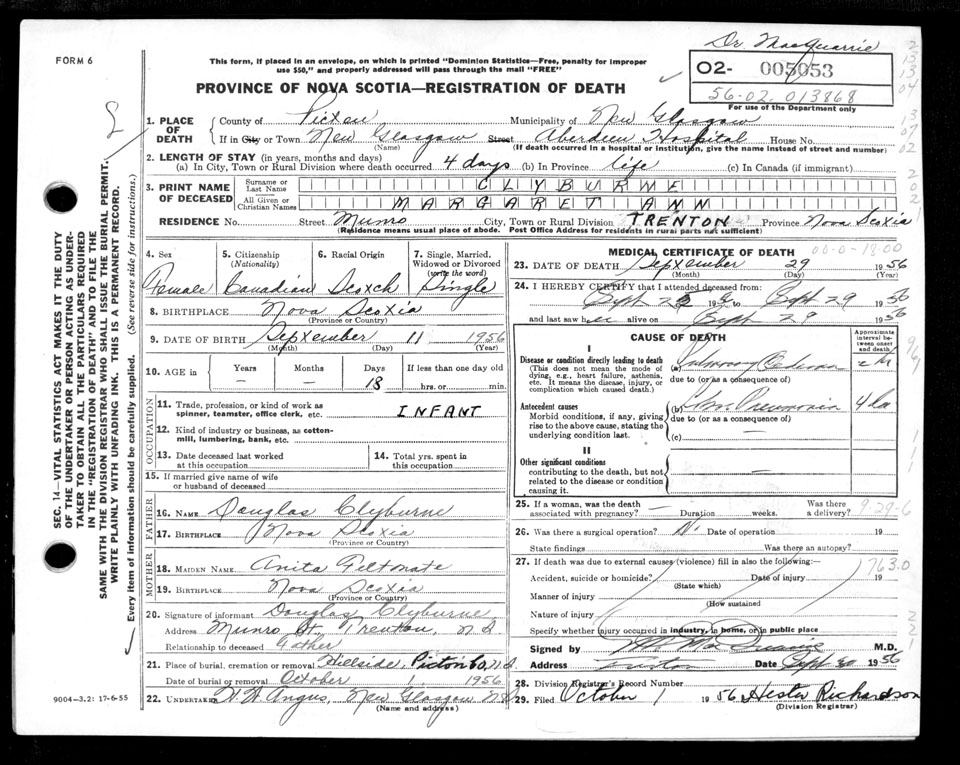 Dr. MacQuarrie
FORM 6
This form, if placed in an envelope, on which is printed "Dominion Statistics—Free, penalty for improper
use $50," and properly addressed will pass through the mail "FREE"
02- 005053
56-02. 013868
For use of the Department only
PROVINCE OF NOVA SCOTIA—REGISTRATION OF DEATH
1. PLACE OF DEATH County of Pictou Municipality of New Glasgow
If in City or Town New Glasgow Street Aberdeen Hospital House No.
(Name) (If death occurred in a hospital or institution, give the name instead of street and number)
2. LENGTH OF STAY (in years, months and days)
(a) In City, Town or Rural Division where death occurred 4 days (b) In Province life (c) In Canada (if immigrant)
3. PRINT NAME OF DECEASED Surname or Last Name CLYBURNE
All Given or Christian Names MARGARET ANN
RESIDENCE No. Street Munro City, Town or Rural Division TRENTON Province Nova Scotia
(Residence means usual place of abode. Post Office Address for residents in rural parts not sufficient)
4. Sex 5. Citizenship (Nationality) 6. Racial Origin 7. Single, Married, Widowed or Divorced (write the word)
Female Canadian Scotch Single
8. BIRTHPLACE Nova Scotia
(Province or Country)
9. DATE OF BIRTH September 11 1956
(Month) (Day) (Year)
10. AGE in Years Months Days If less than one day old
— — 18 hrs. or min.
OCCUPATION
11. Trade, profession, or kind of work as spinner, teamster, office clerk, etc. INFANT
12. Kind of industry or business, as cotton-mill, lumbering, bank, etc.
13. Date deceased last worked at this occupation 14. Total yrs. spent in this occupation
15. If married give name of wife or husband of deceased
FATHER
16. NAME Douglas Clyburne
17. BIRTHPLACE Nova Scotia
(Province or Country)
MOTHER
18. MAIDEN NAME Anita
19. BIRTHPLACE Nova Scotia
(Province or Country)
20. Signature of informant Douglas Clyburne
Address Munro St., Trenton, N.S.
Relationship to deceased Father
21. Place of burial, cremation or removal Hillside, Pictou Co, N.S.
Date of burial or removal October 1, 1956
22. UNDERTAKER H.W. Angus, New Glasgow N.S.
(Name and address)
MEDICAL CERTIFICATE OF DEATH
23. DATE OF DEATH September 29 1956
(Month) (Day) (Year)
24. I HEREBY CERTIFY that I attended deceased from:
Sept 2 to Sept 29 1956
and last saw her alive on Sept 29 1956
CAUSE OF DEATH
Approximate interval between onset and death
I
Disease or condition directly leading to death
(This does not mean the mode of dying, e.g., heart failure, asthenia, etc. It means the disease, injury, or complication which caused death.)
(a) Pulmonary Oedema
due to (or as a consequence of)
Antecedent causes
Morbid conditions, if any, giving rise to the above cause, stating the underlying condition last.
(b) Pneumonia 4 da
due to (or as a consequence of)
(c) —
II
Other significant conditions
contributing to the death, but not related to the disease or condition causing it.
25. If a woman, was the death associated with pregnancy? — Duration weeks. Was there a delivery?
9-29-6
26. Was there a surgical operation? No Date of operation 19
State findings Was there an autopsy?
27. If death was due to external causes (violence) fill in also the following:—
763.0
Accident, suicide or homicide? Date of injury 19
(State which)
Manner of injury
(How sustained
Nature of injury
Specify whether injury occurred in industry, in home, or in public place
Signed by M.D.
Address Trenton Date Sept 30 1956
28. Division Registrar's Record Number
29. Filed October 1 1956 Hester Richardson
(Division Registrar)
SEC. 14—VITAL STATISTICS ACT MAKES IT THE DUTY
OF THE UNDERTAKER OR PERSON ACTING AS UNDER-
TAKER TO OBTAIN ALL THE PARTICULARS REQUIRED
IN THE "REGISTRATION OF DEATH" AND TO FILE THE
SAME WITH THE DIVISION REGISTRAR WHO SHALL ISSUE THE BURIAL PERMIT.
WRITE PLAINLY WITH UNFADING INK. THIS IS A PERMANENT RECORD.
Every item of information should be carefully supplied. (See reverse side for instructions.)
9004—3.2: 17-6-55